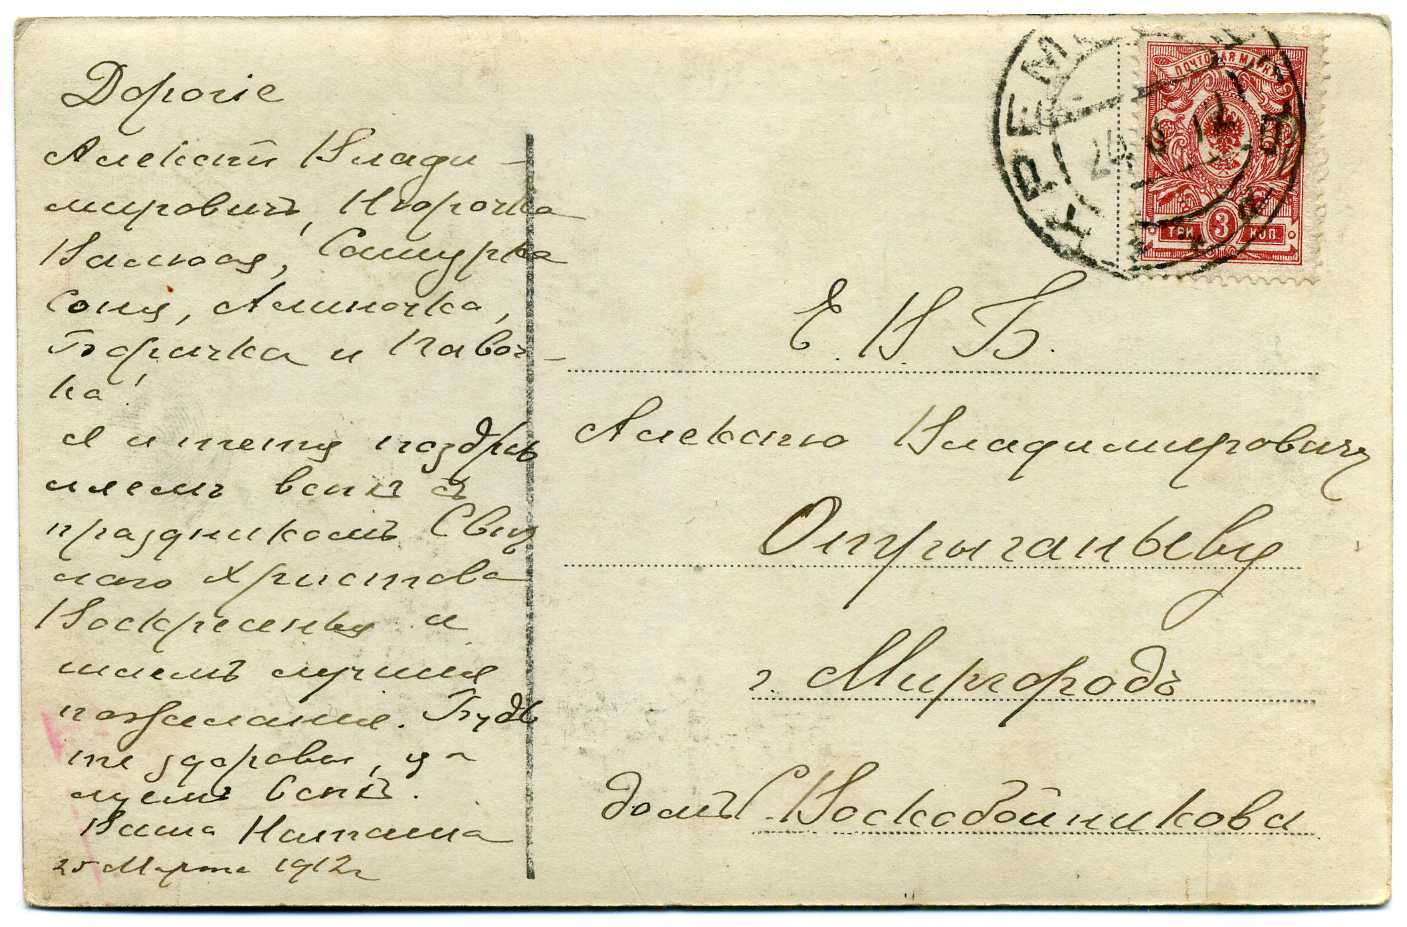 Дорогіе
Алексѣй Влади-
міровичъ, Ниорочка
Валюся, Сашурка
Соня, Алиночка,
Боричка и Клавоч-
ка!
Я и тетя поздрав
ляемъ всѣхъ съ
праздникомъ Свѣт
лаго Христова
Воскресенья и
шлемъ лучшія
пожеланія. Будь
те здоровы, цѣ-
луемъ всѣхъ.
Ваша Наташа
25 Марта 1912 г
ПОЧТОВАЯ МАРКА
3
ТРИ КОП.
КРЕМ
Е. В. Б.
Алексѣю Владимировичу
Отрыганьеву
г. Миргородъ
домъ С. Воскобойникова